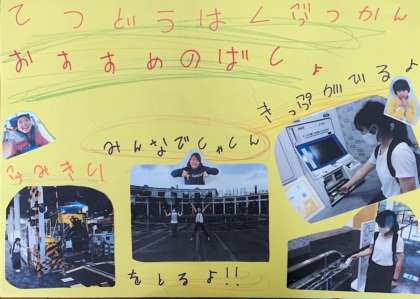 てつどうはくぶつかん
おすすめのばしょ
きっぷがでるよ
みんなでしゃしん
ふみきり
をとるよ!!